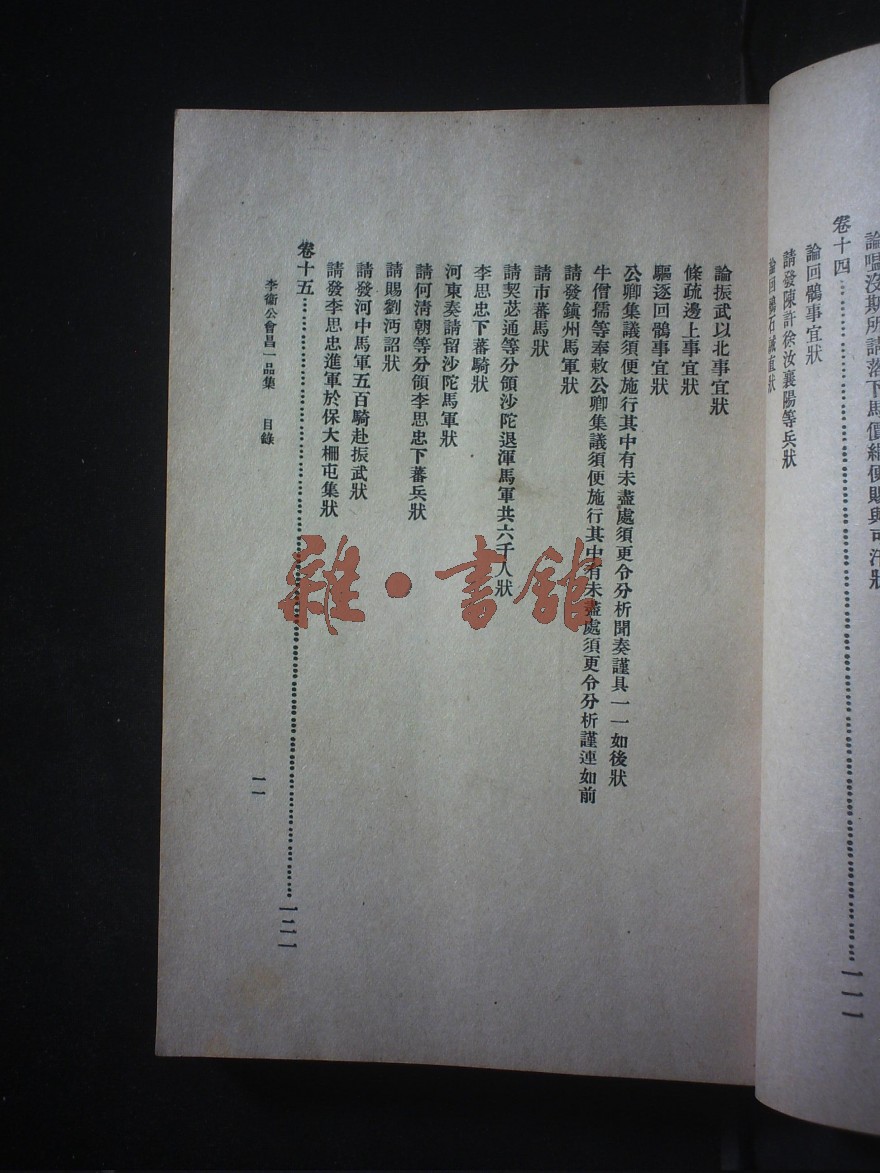 論嗢沒斯所請落下馬價絹便賜與可汗狀
卷十四……一一一
論回鶻事宜狀
請發陳許徐汝襄陽等兵狀
論回鶻石誡直狀
論振武以北事宜狀
條疏邊上事宜狀
驅逐回鶻事宜狀
公卿集議須便施行其中有未盡處須更令分析聞奏謹具一一如後狀
牛僧孺等奉敕公卿集議須便施行其中有未盡處須更令分析謹連如前
請發鎮州馬軍狀
請市蕃馬狀
請契苾通等分領沙陀退渾馬軍共六千人狀
李思忠下蕃騎狀
河東奏請留沙陀馬軍狀
請何清朝等分領李思忠下蕃兵狀
請賜劉沔詔狀
請發河中馬軍五百騎赴振武狀
請發李思忠進軍於保大柵屯集狀
卷十五……一二一
李衞公會昌一品集 目錄
一一
雜·書館